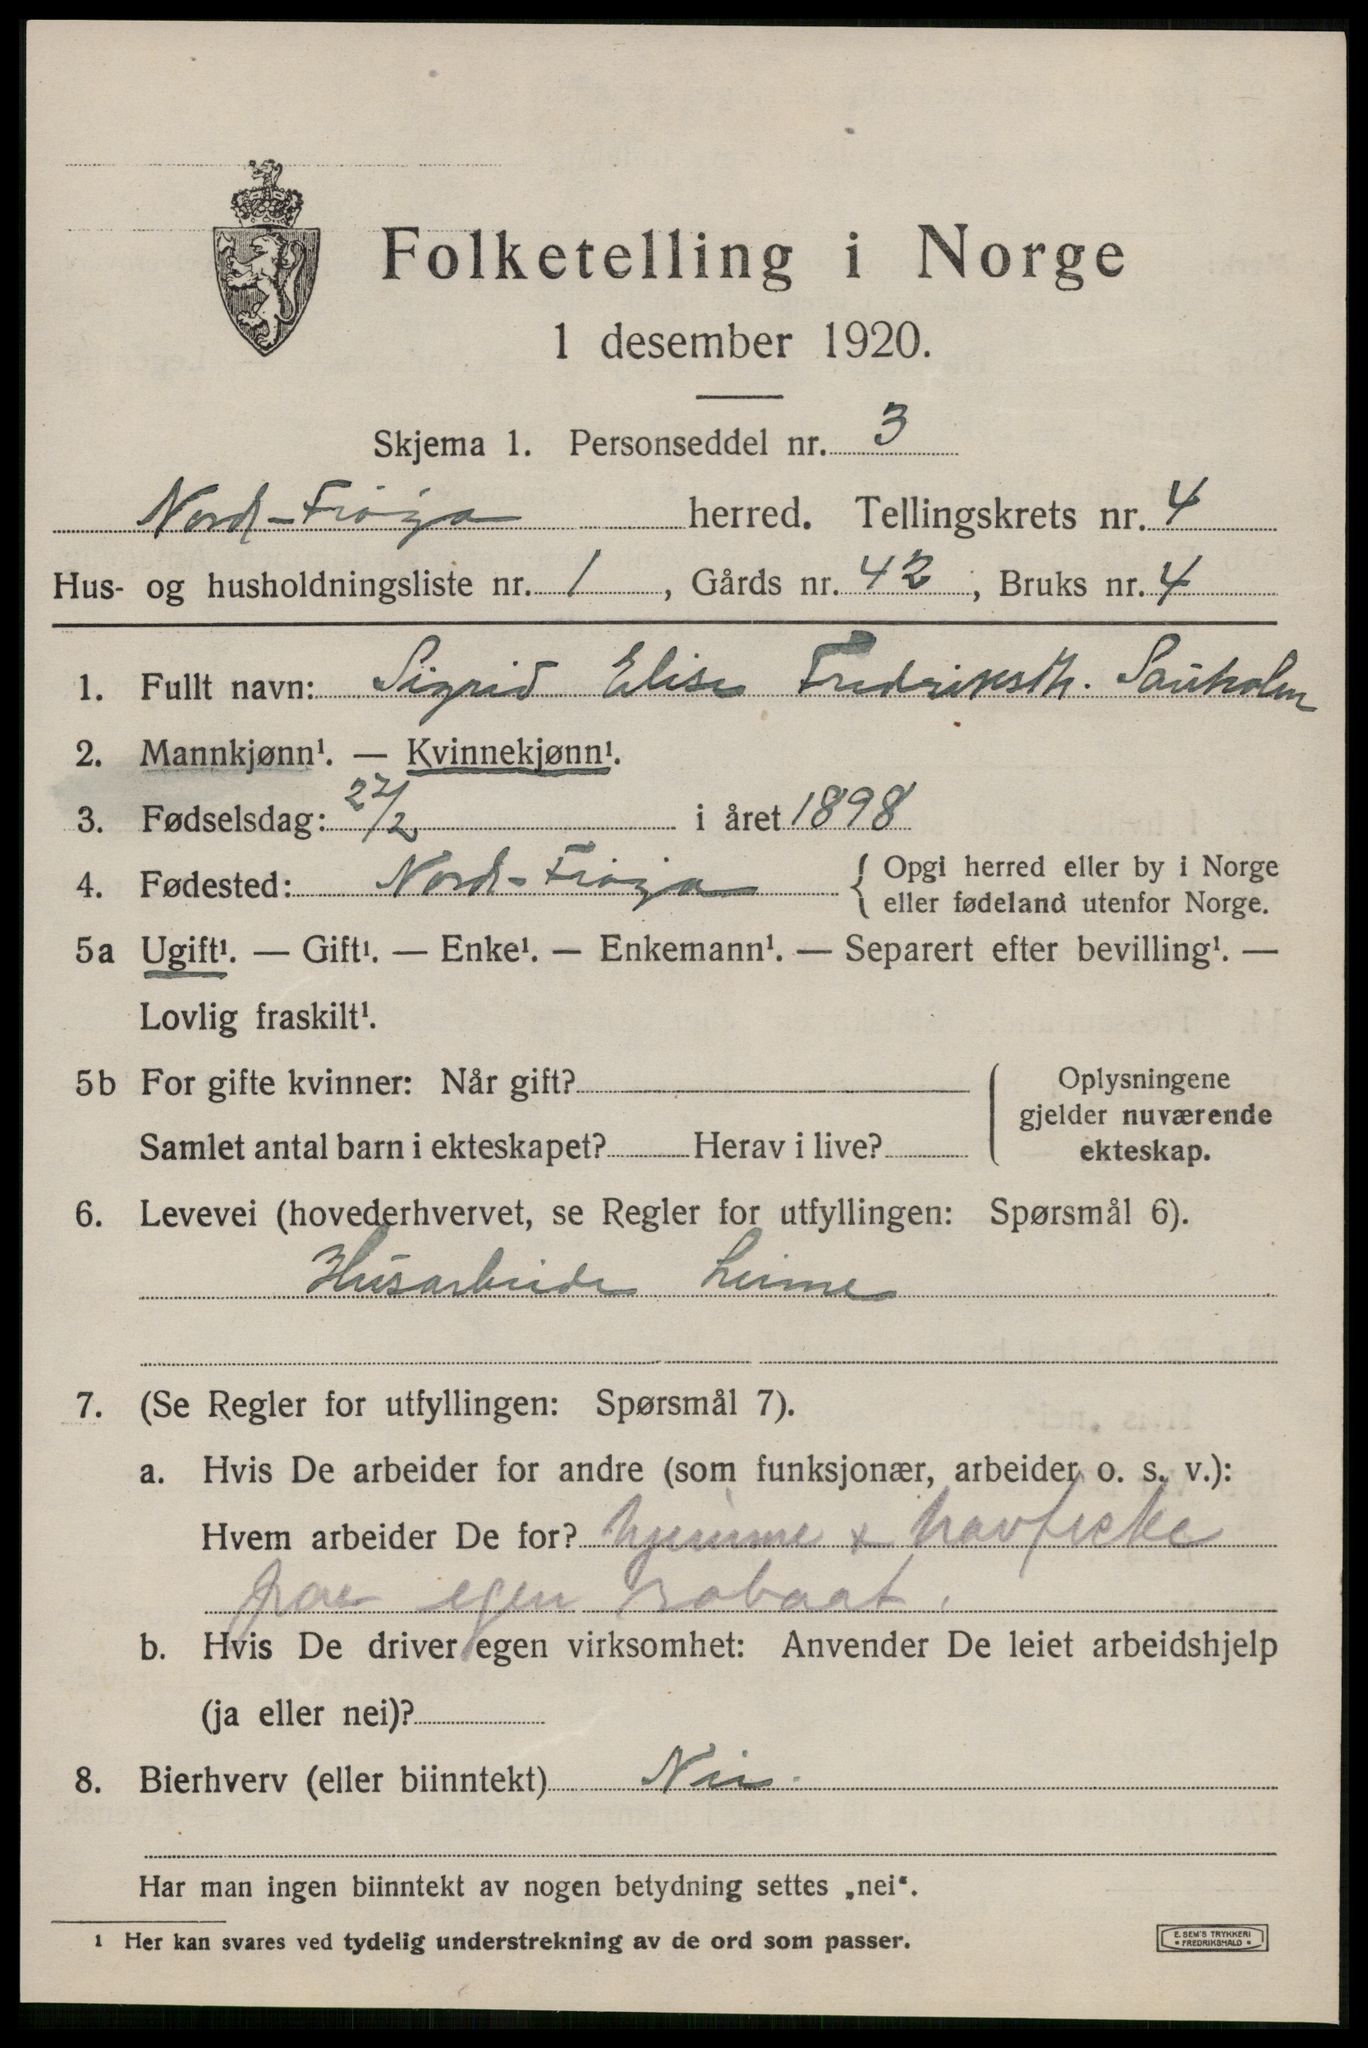 Folketelling i Norge
1 desember 1920.
Skjema 1. Personseddel nr. 3
Nord-Frøya herred. Tellingskrets nr. 4
Hus- og husholdningsliste nr. 1, Gårds nr. 42, Bruks nr. 4
1. Fullt navn: Sigrid Elise Fredriksdtr. Sauholm
2. Mannkjønn¹. — Kvinnekjønn¹.
3. Fødselsdag: 27/2 i året 1898
4. Fødested: Nord-Frøya { Opgi herred eller by i Norge
eller fødeland utenfor Norge.
5a Ugift¹. — Gift¹. — Enke¹. — Enkemann¹. — Separert efter bevilling¹. —
Lovlig fraskilt¹.
5b For gifte kvinner: Når gift?
Samlet antal barn i ekteskapet? Herav i live?
Oplysningene
gjelder nuværende
ekteskap.
6. Levevei (hovederhvervet, se Regler for utfyllingen: Spørsmål 6).
Husarbeide
7. (Se Regler for utfyllingen: Spørsmål 7).
a. Hvis De arbeider for andre (som funksjonær, arbeider o. s. v.):
Hvem arbeider De for? hjemme + havfiske
paa egen
b. Hvis De driver egen virksomhet: Anvender De leiet arbeidshjelp
(ja eller nei)?
8. Bierhverv (eller biinntekt) Nei.
Har man ingen biinntekt av nogen betydning settes „nei".
¹ Her kan svares ved tydelig understrekning av de ord som passer.
E. SEM'S TRYKKERI
• FREDRIKSHALD •